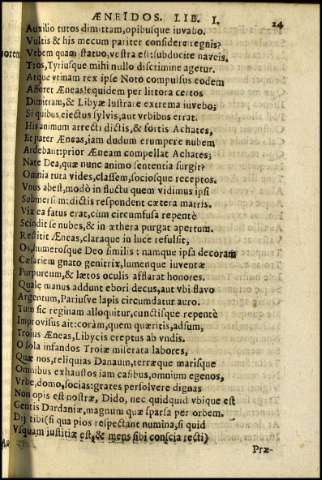 ÆNEIDOS. LIB. I.
24
Auxilio tutos dimittam, opibusque iuvabo.
Vultis & his mecum pariter considere regnis?
Vrbem quam statuo, vestra est: subducite naveis,
Tros, Tyriusque mihi nullo discrimine agetur.
Atque utinam rex ipse Noto compulsus eodem
Afforet Æneas! equidem per littora certos
Dimittam, & Libyæ lustrare extrema iuvebo;
Si quibus eiectus sylvis, aut vrbibus errat.
His animum arrecti dictis, & fortis Achates,
Et pater Æneas, iam dudum erumpere nubem
Ardebant: prior Æneam compellat Achates;
Nate Dea, quæ nunc animo sententia surgit?
Omnia tuta vides, classem, sociosque receptos.
Vnus abest, modò in fluctu quem vidimus ipsi
Submersum: dictis respondent cætera matris.
Vix ea fatus erat, cùm circumfusa repentè
Scindit se nubes, & in æthera purgat apertum.
Restitit Æneas, claraque in luce refulsit,
Os, humerosque Deo similis: namque ipsa decoram
Cæsariem gnato genitrix, lumenque iuventæ
Purpureum, & lætos oculis afflarat honores.
Quale manus addunt ebori decus, aut vbi flavo
Argentum, Pariusve lapis circumdatur auro.
Tum sic reginam alloquitur, cunctisque repentè
Improvisus ait: coràm, quem quæritis, adsum,
Troius Æneas, Libycis ereptus ab vndis.
O sola infandos Troiæ miserata labores,
Quæ nos, reliquias Danaum, terræque marisque
Omnibus exhaustos iam casibus, omnium egenos,
Vrbe, domo, socias: grates persolvere dignas
Non opis est nostræ, Dido, nec quidquid vbique est
Gentis Dardaniæ, magnum quæ sparsa per orbem.
Dij tibi (si qua pios respectant numina, si quid
Vsquam iustitiæ est, & mens sibi conscia recti)
Præ-